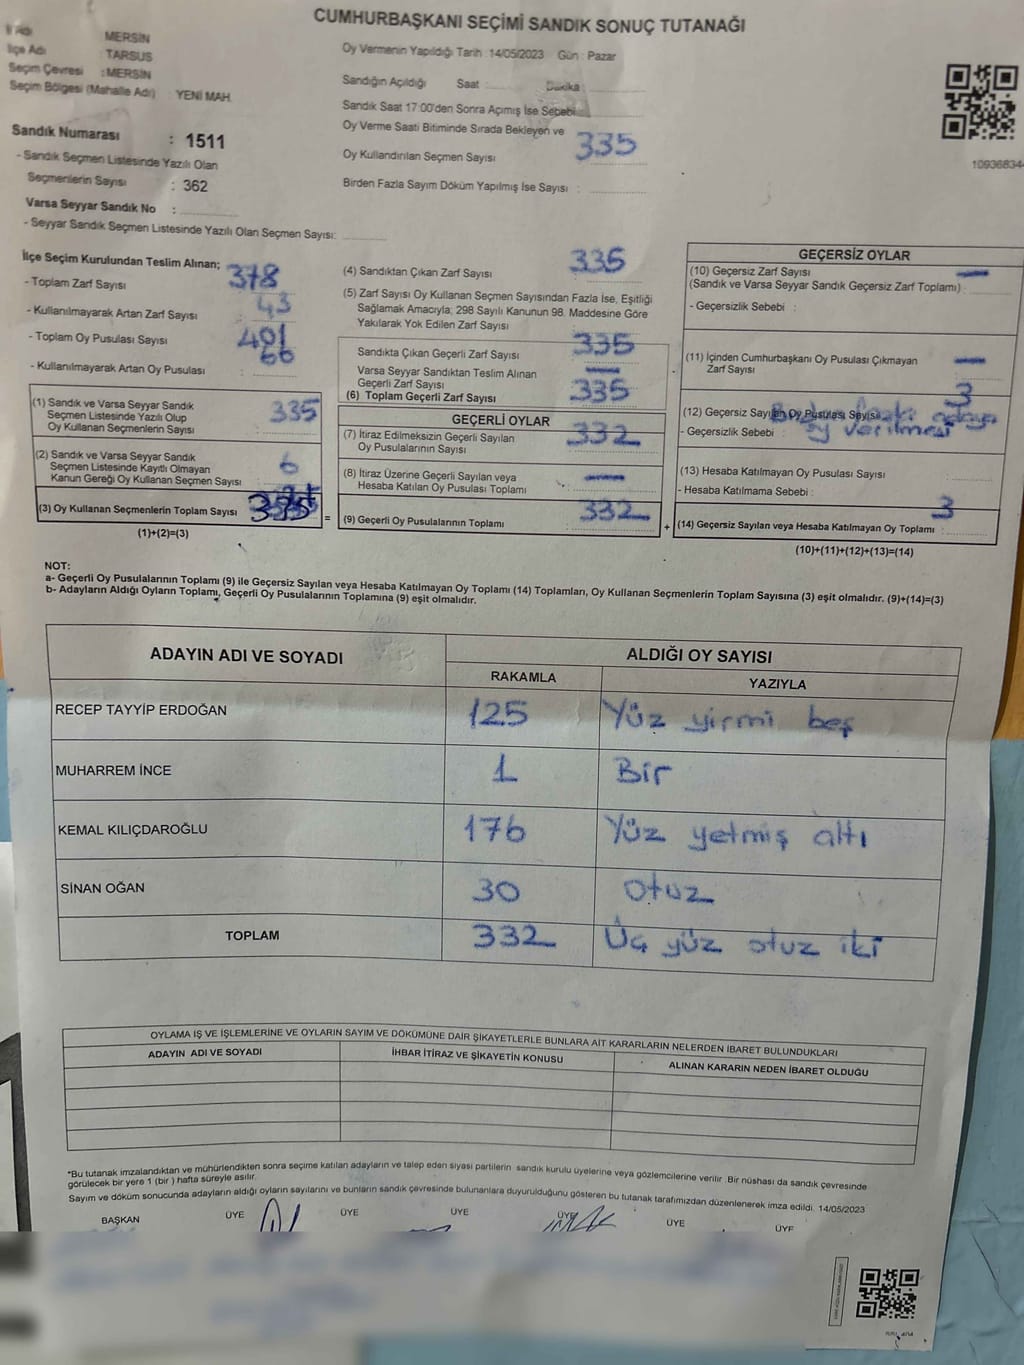 CUMHURBAŞKANI SEÇİMİ SANDIK SONUÇ TUTANAĞI
İl Adı MERSİN
İlçe Adı : TARSUS
Seçim Çevresi : MERSİN
Seçim Bölgesi (Mahalle Adı) : YENİ MAH.
Sandık Numarası : 1511
- Sandık Seçmen Listesinde Yazılı Olan
Seçmenlerin Sayısı : 362
Varsa Seyyar Sandık No :
- Seyyar Sandık Seçmen Listesinde Yazılı Olan Seçmen Sayısı:
Oy Vermenin Yapıldığı Tarih : 14/05/2023 Gün : Pazar
Sandığın Açıldığı Saat : Dakika :
Sandık Saat 17:00'den Sonra Açımış İse Sebebi
Oy Verme Saati Bitiminde Sırada Bekleyen ve
Oy Kullandırılan Seçmen Sayısı 335
Birden Fazla Sayım Döküm Yapılmış İse Sayısı :
10936834
İlçe Seçim Kurulundan Teslim Alınan;
- Toplam Zarf Sayısı 378
- Kullanılmayarak Artan Zarf Sayısı : 43
- Toplam Oy Pusulası Sayısı : 401
- Kullanılmayarak Artan Oy Pusulası : 66
(1) Sandık ve Varsa Seyyar Sandık
Seçmen Listesinde Yazılı Olup
Oy Kullanan Seçmenlerin Sayısı 335
(2) Sandık ve Varsa Seyyar Sandık
Seçmen Listesinde Kayıtlı Olmayan
Kanun Gereği Oy Kullanan Seçmen Sayısı 6
(3) Oy Kullanan Seçmenlerin Toplam Sayısı
(1)+(2)=(3)
(4) Sandıktan Çıkan Zarf Sayısı 335
(5) Zarf Sayısı Oy Kullanan Seçmen Sayısından Fazla İse, Eşitliği
Sağlamak Amacıyla; 298 Sayılı Kanunun 98. Maddesine Göre
Yakılarak Yok Edilen Zarf Sayısı :
Sandıkta Çıkan Geçerli Zarf Sayısı 335
Varsa Seyyar Sandıktan Teslim Alınan
Geçerli Zarf Sayısı —
(6) Toplam Geçerli Zarf Sayısı 335
GEÇERLİ OYLAR
(7) İtiraz Edilmeksizin Geçerli Sayılan
Oy Pusulalarının Sayısı : 332
(8) İtiraz Üzerine Geçerli Sayılan veya
Hesaba Katılan Oy Pusulası Toplamı —
=
(9) Geçerli Oy Pusulalarının Toplamı 332
+
GEÇERSİZ OYLAR
(10) Geçersiz Zarf Sayısı —
(Sandık ve Varsa Seyyar Sandık Geçersiz Zarf Toplamı) :
- Geçersizlik Sebebi :
(11) İçinden Cumhurbaşkanı Oy Pusulası Çıkmayan —
Zarf Sayısı
3
(12) Geçersiz Sayılan Oy Pusulası Sayısı
- Geçersizlik Sebebi : oy verilmesi
(13) Hesaba Katılmayan Oy Pusulası Sayısı
- Hesaba Katılmama Sebebi :
(14) Geçersiz Sayılan veya Hesaba Katılmayan Oy Toplamı : 3
(10)+(11)+(12)+(13)=(14)
NOT:
a- Geçerli Oy Pusulalarının Toplamı (9) ile Geçersiz Sayılan veya Hesaba Katılmayan Oy Toplamı (14) Toplamları, Oy Kullanan Seçmenlerin Toplam Sayısına (3) eşit olmalıdır. (9)+(14)=(3)
b- Adayların Aldığı Oyların Toplamı, Geçerli Oy Pusulalarının Toplamına (9) eşit olmalıdır.
ADAYIN ADI VE SOYADI ALDIĞI OY SAYISI
RAKAMLA YAZIYLA
RECEP TAYYİP ERDOĞAN 125 Yüz yirmi beş
MUHARREM İNCE 1 Bir
KEMAL KILIÇDAROĞLU 176 Yüz yetmiş altı
SİNAN OĞAN 30 otuz
TOPLAM 332 Üç yüz otuz iki
OYLAMA İŞ VE İŞLEMLERİNE VE OYLARIN SAYIM VE DÖKÜMÜNE DAİR ŞİKAYETLERLE BUNLARA AİT KARARLARIN NELERDEN İBARET BULUNDUKLARI
ADAYIN ADI VE SOYADI İHBAR İTİRAZ VE ŞİKAYETİN KONUSU ALINAN KARARIN NEDEN İBARET OLDUĞU
*Bu tutanak imzalandıktan ve mühürlendikten sonra seçime katılan adayların ve talep eden siyasi partilerin sandık kurulu üyelerine veya gözlemcilerine verilir. Bir nüshası da sandık çevresinde
görülecek bir yere 1 (bir) hafta süreyle asılır.
Sayım ve döküm sonucunda adayların aldığı oyların sayılarını ve bunların sandık çevresinde bulunanlara duyurulduğunu gösteren bu tutanak tarafımızdan düzenlenerek imza edildi. 14/05/2023
BAŞKAN ÜYE ÜYE ÜYE ÜYE ÜYE ÜYE